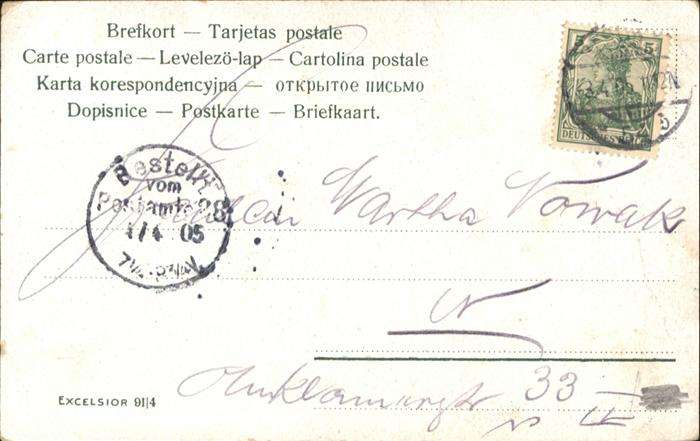 Brefkort — Tarjetas postale
Carte postale — Levelezö-lap — Cartolina postale
Karta korespondencyjna — открытое письмо
Dopisnice — Postkarte — Briefkaart.
5 5
DEUTSCHES REICH
Bestellt
vom
Postamte 28
1/4 05
Martha Nowak
N
33
EXCELSIOR 91|4